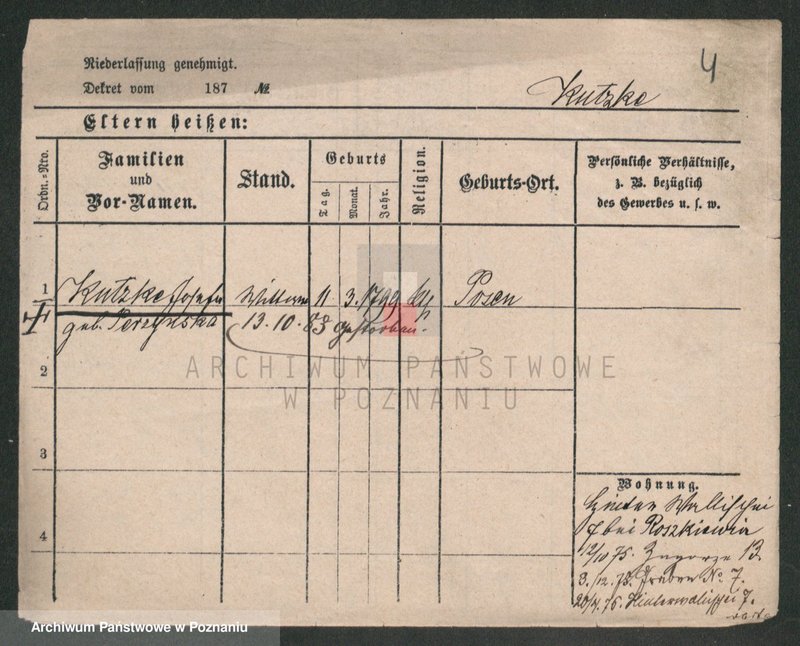 4
Niederlassung genehmigt.
Dekret vom 187 №
Kutzke
Eltern heißen:
Ordn.-Nro.
Familien und Vor-Namen.
Stand.
Geburts
Tag.
Monat.
Jahr.
Religion.
Geburts-Ort.
Persönliche Verhältnisse,
z. B. bezüglich
des Gewerbes u. s. w.
1 Kutzke Josefa Wittwe 11 3. 1799 kth Posen
geb. Perzynska 13. 10. 83 gestorben.
ARCHIWUM PAŃSTWOWE
W POZNANIU
2
3
4
Wohnung.
Hinter Wallischei
7 bei Roszkiewicz
12/10 75. Zagorze 13.
3./12. 75. No. 7.
20/4. 76. Hinterwallischei 7.
Archiwum Państwowe w Poznaniu